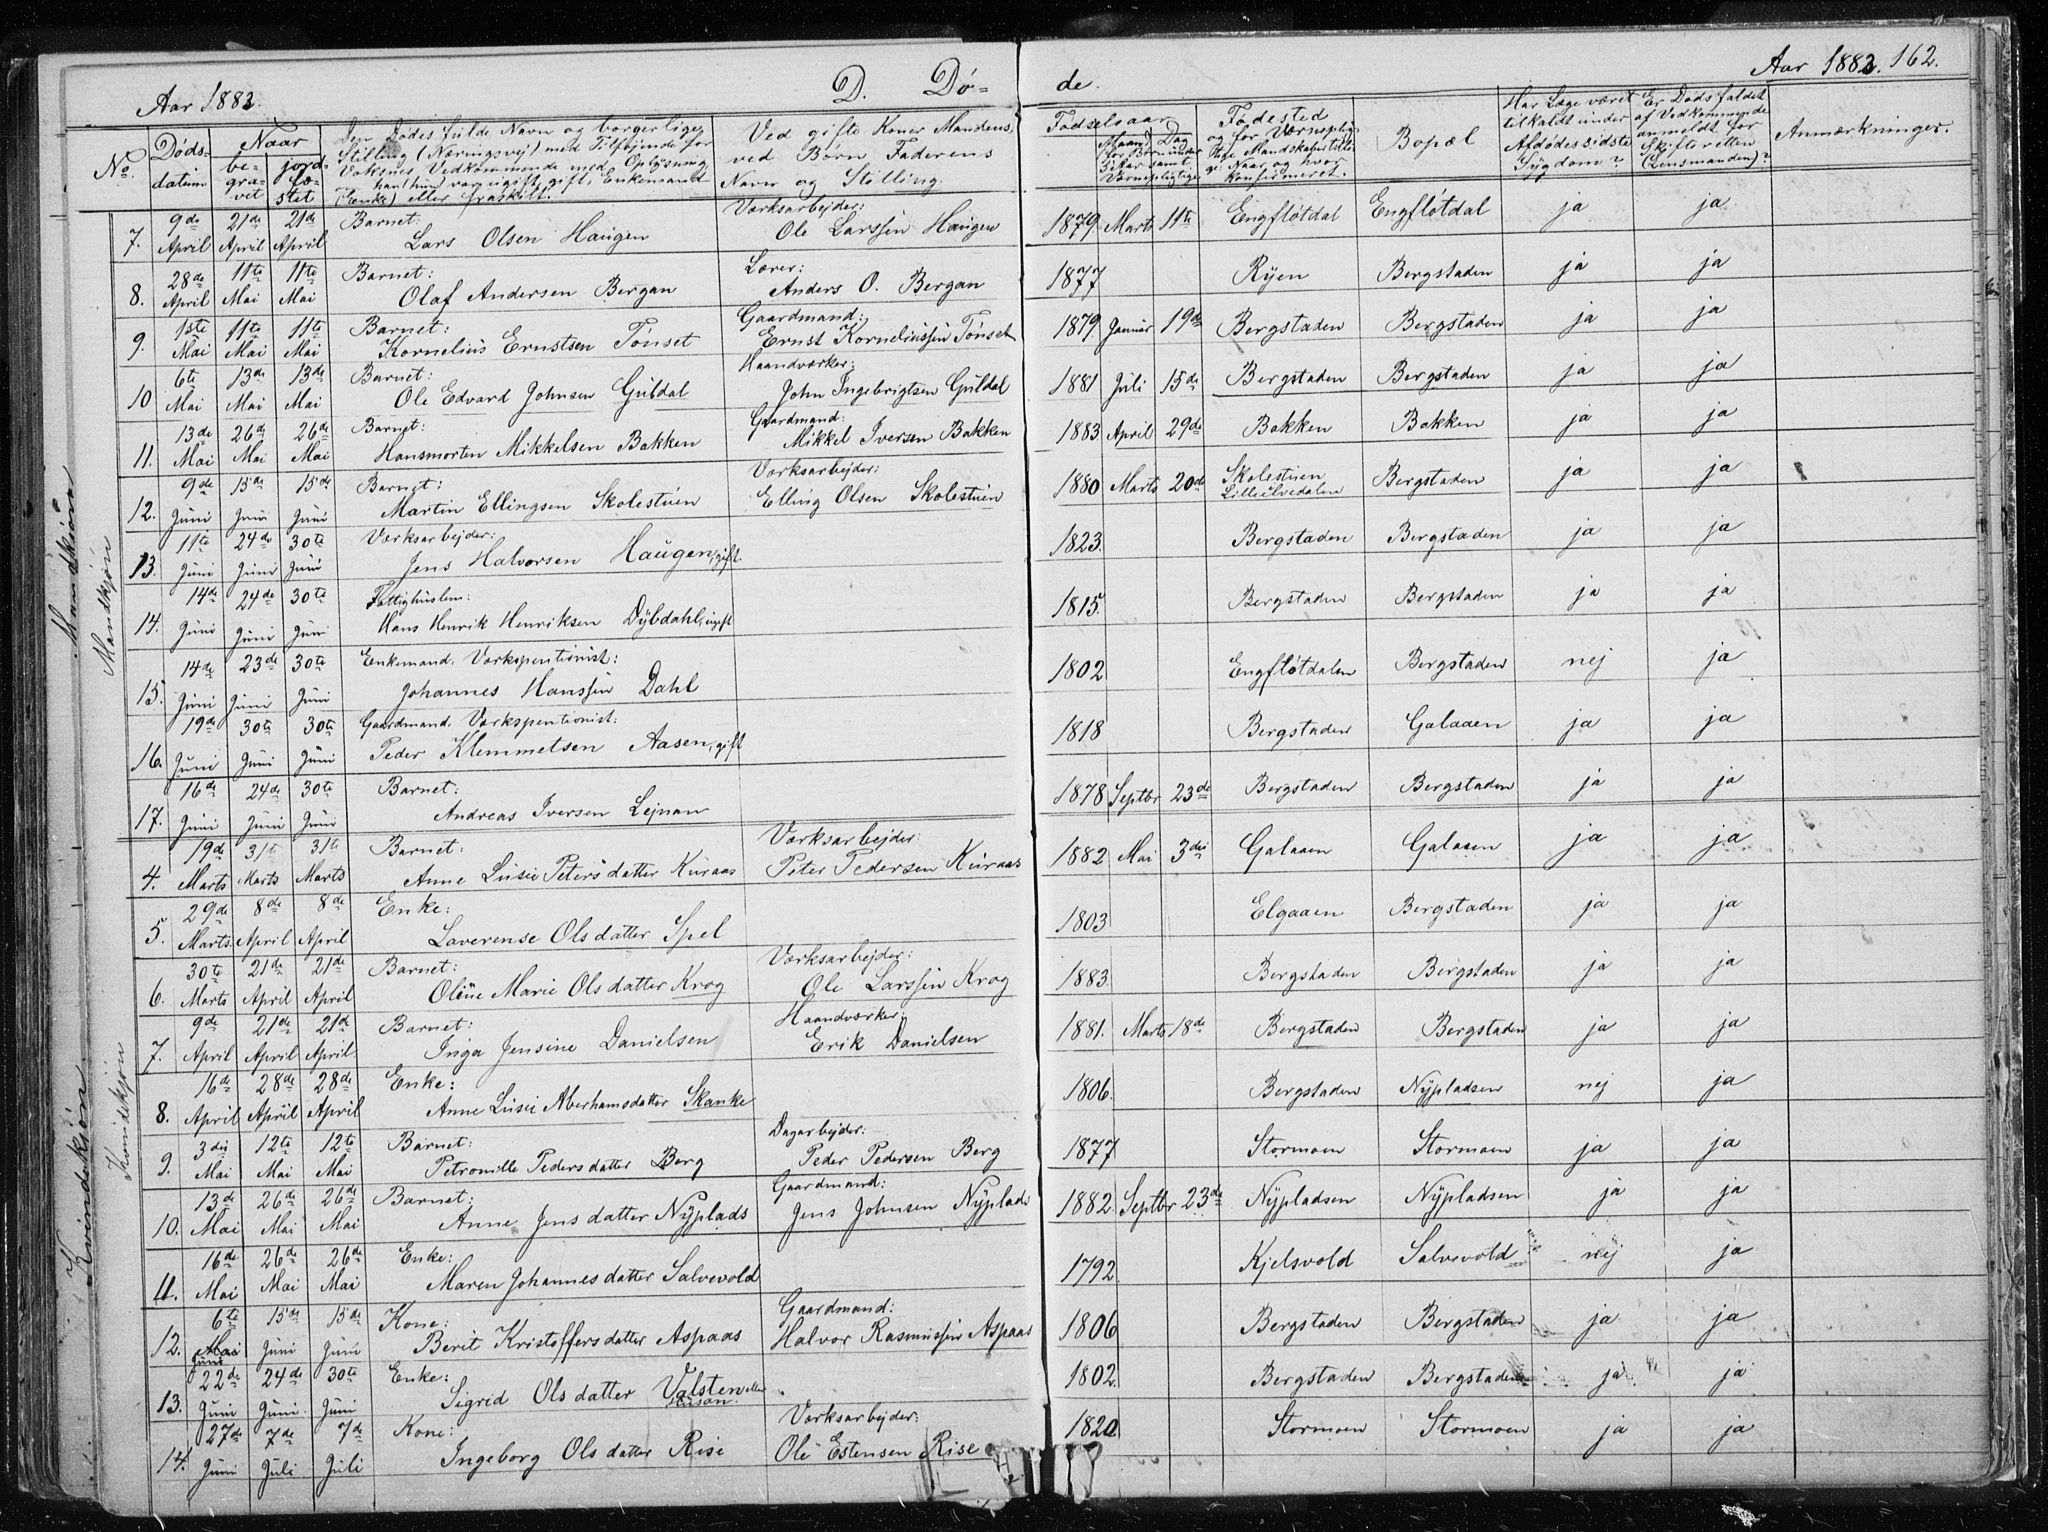 Aar 1883. D. Dø- de. Aar 1883. 162.
No. Døds-datum Naar be-gra-vet jord-fæ-stet Den Dødes fulde Navn og borgerlige Stilling (Næringsvej) med Tilføjende for Voksnes Vedkommende med Oplysning han (hun) var ugift, gift, Enkemand (Enke) eller fraskilt. Ved gifte Koner Mandens, ved Børn Faderens Navn og Stilling. Fødselsaar Maaned Dag for Børn under samt Værnepligtige Fødested og for Værneplig- Naar og hvor konfirmeret. Bopæl Har Læge været tilkaldt under Afdødes sidste Sygdom? Er Dødsfaldet af Vedkommende anmeldt for Skifteretten (Lensmanden)? Anmærkninger.
Mandkjøn
Mandkjøn
7. 9de April 21de April 21de April Barnet: Lars Olsen Haugen Værksarbejder: Ole Larssen Haugen 1879 Marts 11te Engfløtdal Engfløtdal ja ja
8. 28de April 11te Mai 11te Mai Barnet: Olaf Andersen Bergan Lærer: Anders O. Bergan 1877 Ryen Bergstaden ja ja
9. 1ste Mai 11te Mai 11te Mai Barnet: Kornelius Ernstsen Tønset Gaardmand: Ernst Korneliussen Tønset 1879 Januar 19de Bergstaden Bergstaden ja ja
10 6te Mai 13de Mai 13de Mai Barnet: Ole Edvard Johnsen Guldal Haandværker: John Ingebrigtsen Guldal 1881 Juli 15de Bergstaden Bergstaden ja ja
11. 13de Mai 26de Mai 26de Mai Barnet: Hansmorten Mikkelsen Bakken Gaardmand: Mikkel Iversen Bakken 1883 April 29de Bakken Bakken ja ja
12. 9de Juni 15de Juni 15de Juni Barnet: Martin Ellingsen Skolestuen Værksarbejder: Elling Olsen Skolestuen 1880 Marts 20de Skolestuen Lilleelvedalen Bergstaden ja ja
13. 11te Juni 24de Juni 30te Juni Værksarbejder: Jens Halvorsen Haugen, gift. 1823. Bergstaden Bergstaden ja ja
14. 14de Juni 24de Juni 30te Juni Fattighuslem: Hans Henrik Henriksen Dybdahl, ugift 1815. Bergstaden Bergstaden ja ja
15. 14de Juni 23de Juni 30te Juni Enkemand. Værkspentionist: Johannes Hanssen Dahl 1802 Engfløtdalen Bergstaden nej ja
16. 19de Juni 30te Juni 30te Juni Gaardmand. Værkspentionist: Peder Klemmetsen Aasen, gift 1818 Bergstaden Galaaen ja ja
17. 16de Juni 24de Juni 30te Juni Barnet: Andreas Iversen Lejnan 1878 Septbr 23de Bergstaden Bergstaden ja ja
Kvindekjøn
Kvindekjøn
4. 19de Marts 31te Marts 31te Marts Barnet: Anne Lusie Petersdatter Kuraas Værksarbejder: Peter Pedersen Kuraas 1882 Mai 3die Galaaen Galaaen ja ja
5. 29de Marts 8de April 8de April Enke: Laverense Olsdatter Spel 1803 Elgaaen Bergstaden ja ja
6. 30te Marts 21de April 21de April Barnet: Oline Marie Olsdatter Krog Værksarbejder: Ole Larssen Krog 1883. Bergstaden Bergstaden ja ja
7. 9de April 21de April 21de April Barnet: Inga Jensine Danielsen Haandværker: Erik Danielsen 1881. Marts 18de Bergstaden Bergstaden ja ja
8. 16de April 28de April 28de April Enke: Anne Lusie Aberhamsdatter Skanke 1806. Bergstaden Nypladsen nej ja
9. 3die Mai 12te Mai 12te Mai Barnet: Petronille Pedersdatter Berg Dagarbejder: Peder Pedersen Berg 1877 Stormoen Stormoen ja ja
10. 13de Mai 26de Mai 26de Mai Barnet: Anne Jensdatter Nyplads Gaardmand: Jens Johnsen Nyplads 1882 Septbr 23de Nypladsen Nypladsen ja ja
11. 16de Mai 26de Mai 26de Mai Enke: Maren Johannesdatter Salvevold 1792. Kjelsvold Salvevold nej ja
12. 6te Mai Juni 15de Juni 15de Juni Kone: Berit Kristoffersdatter Aspaas Gaardmand: Halvor Rasmussen Aspaas 1806 Bergstaden Bergstaden ja ja
13. 22de Juni 24de Juni 30te Juni Enke: Sigrid Olsdatter Valsten eller 1802. Bergstaden Bergstaden ja ja
14. 27de Juni 7de Juli 7de Juli Kone: Ingeborg Olsdatter Rise Værksarbejder: Ole Estensen Rise 1820 Stormoen Stormoen ja ja